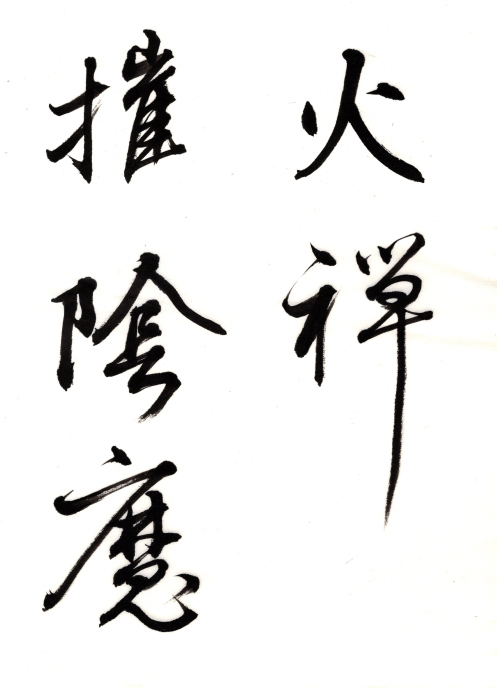 火禅
摧陰魔